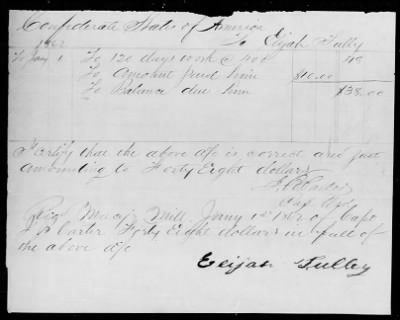 Confederate States of America
1862 To Elijah Tully
To Jany 1 To 120 days work @ 40¢ 48
To Amount paid him $10.00
To Balance due him $38.00
I certify that the above a/c is correct and just
amounting to Forty Eight dollars
Carter
Capt
Mill Jany 1st 1862 of Capt
Carter Forty Eight dollars in full of
the above a/c
Elijah Tulley